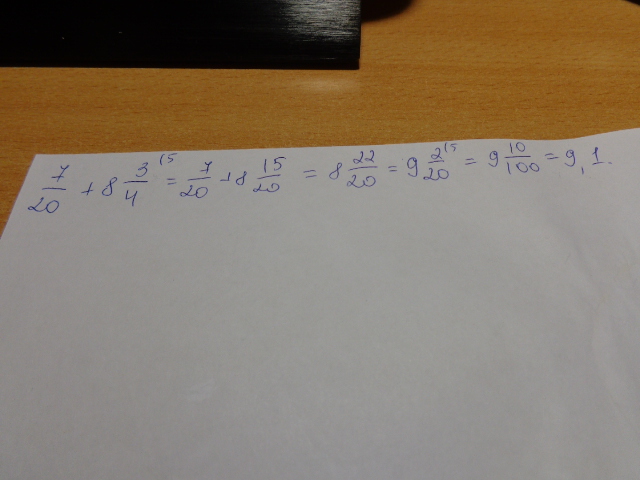 7/20 + 8 3/4 (5 = 7/20 + 8 15/20 = 8 22/20 = 9 2/20 (5 = 9 10/100 = 9,1.